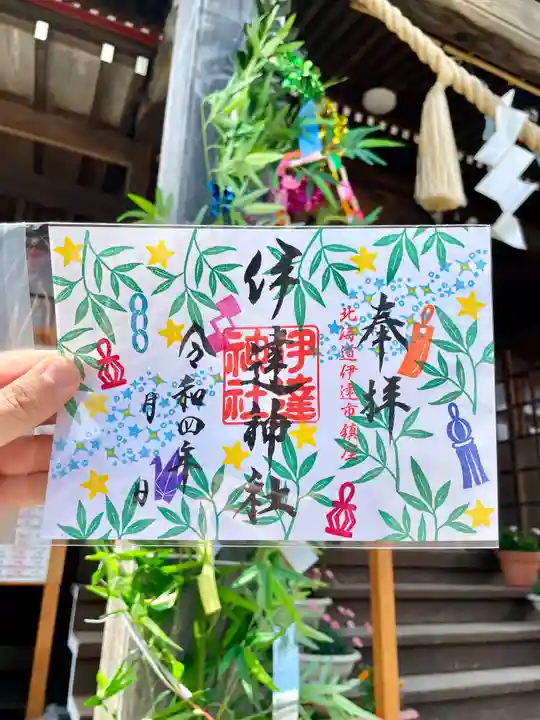 奉拝
北海道伊達市鎮座
伊達神社
伊達
神社
令和四年
月
日